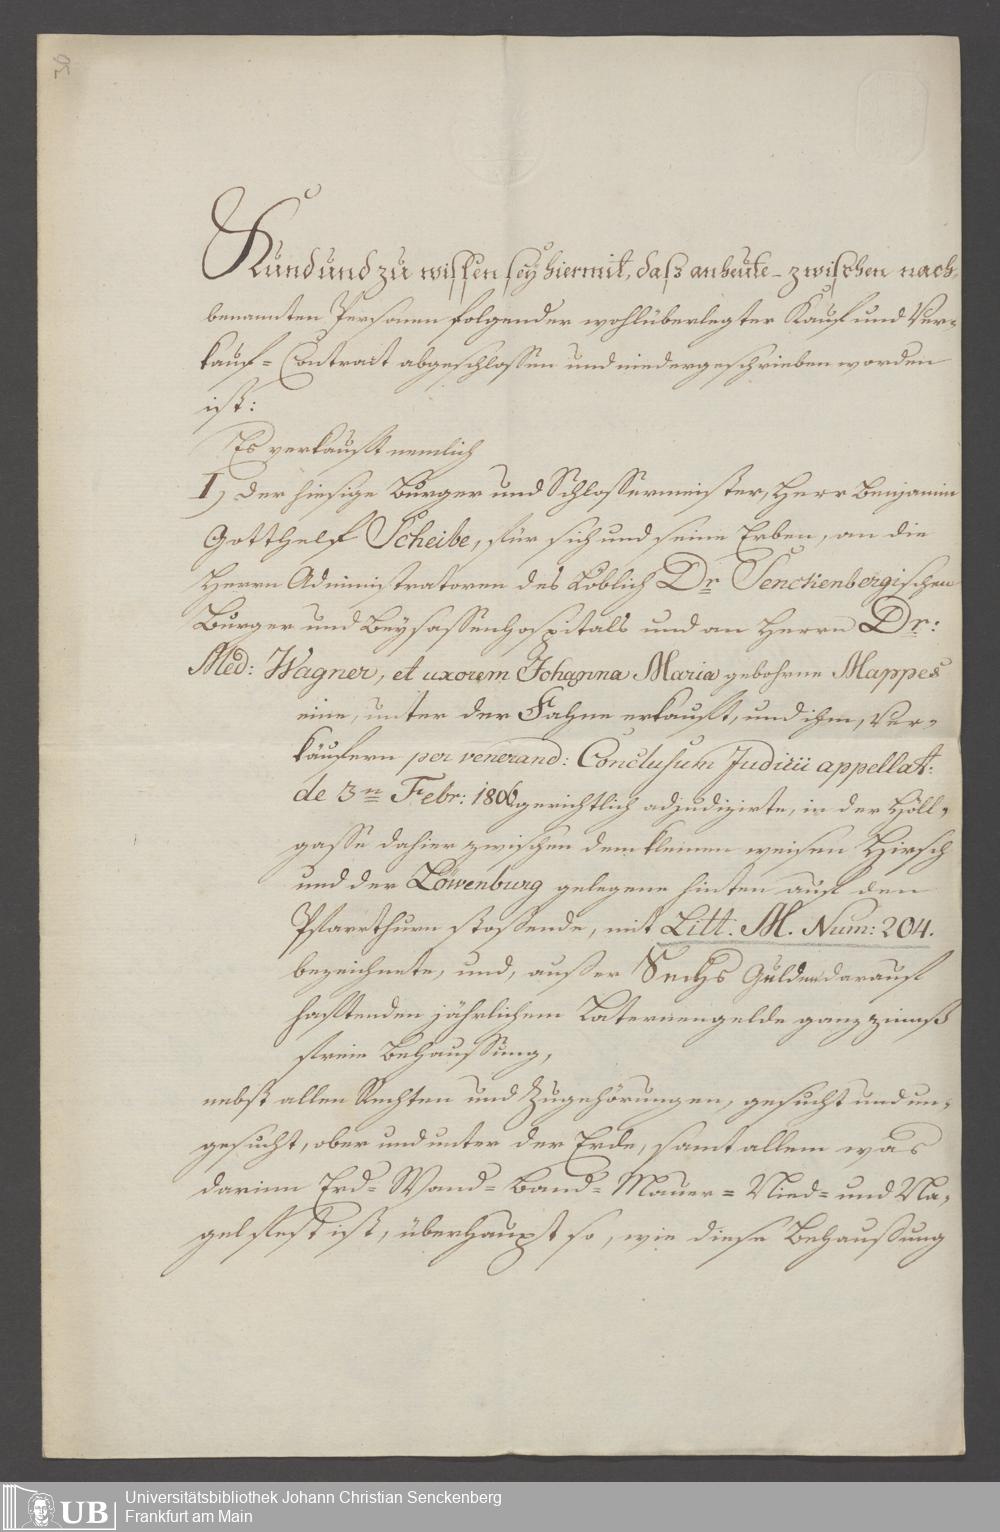 Kund und zu wissen sey hiermit, daß anheute zwischen nach-
benannten Personen folgender wohlüberlegter Kauf und Ver-
kauf-Contract abgeschlossen und niedergeschrieben worden
ist:
Es verkauft nemlich
I, der hiesige Burger und Schlossermeister, Herr Benjamin
Gotthelf Scheibe, für sich und seine Erben, an die
Herrn Administratoren des Löblich Dr Senckenbergischen
Burger und Beysassenhospitals und an Herrn Dr:
Med: Wagner, et uxorem Johanna Maria gebohrne Mappes
eine, unter der Fahne erkauft, und ihm, Ver-
käufern per venerand: Conclusum Judicii appellat:
de 3n Febr: 1806 gerichtlich adjudizirte, in der Höll-
gasse dahier zwischen dem kleinen weisen Hirsch
und der Löwenburg gelegene hinten auf den
Pfarrthurn stossende, mit Litt: M. Num: 204.
bezeichnete, und, außer Sechs Gulden darauf
haftenden jährlichem Laternengelde ganz zinnß
freie Behaussung,
nebst allen Rechten und Zugehörungen, gesucht und un-
gesucht, ober und unter der Erde, samt allem was
darinn Erd- Wand- Band- Mauer- Nied- und Na-
gelfest ist, überhaupt so, wie diese Behaussung
UB
Universitätsbibliothek Johann Christian Senckenberg
Frankfurt am Main